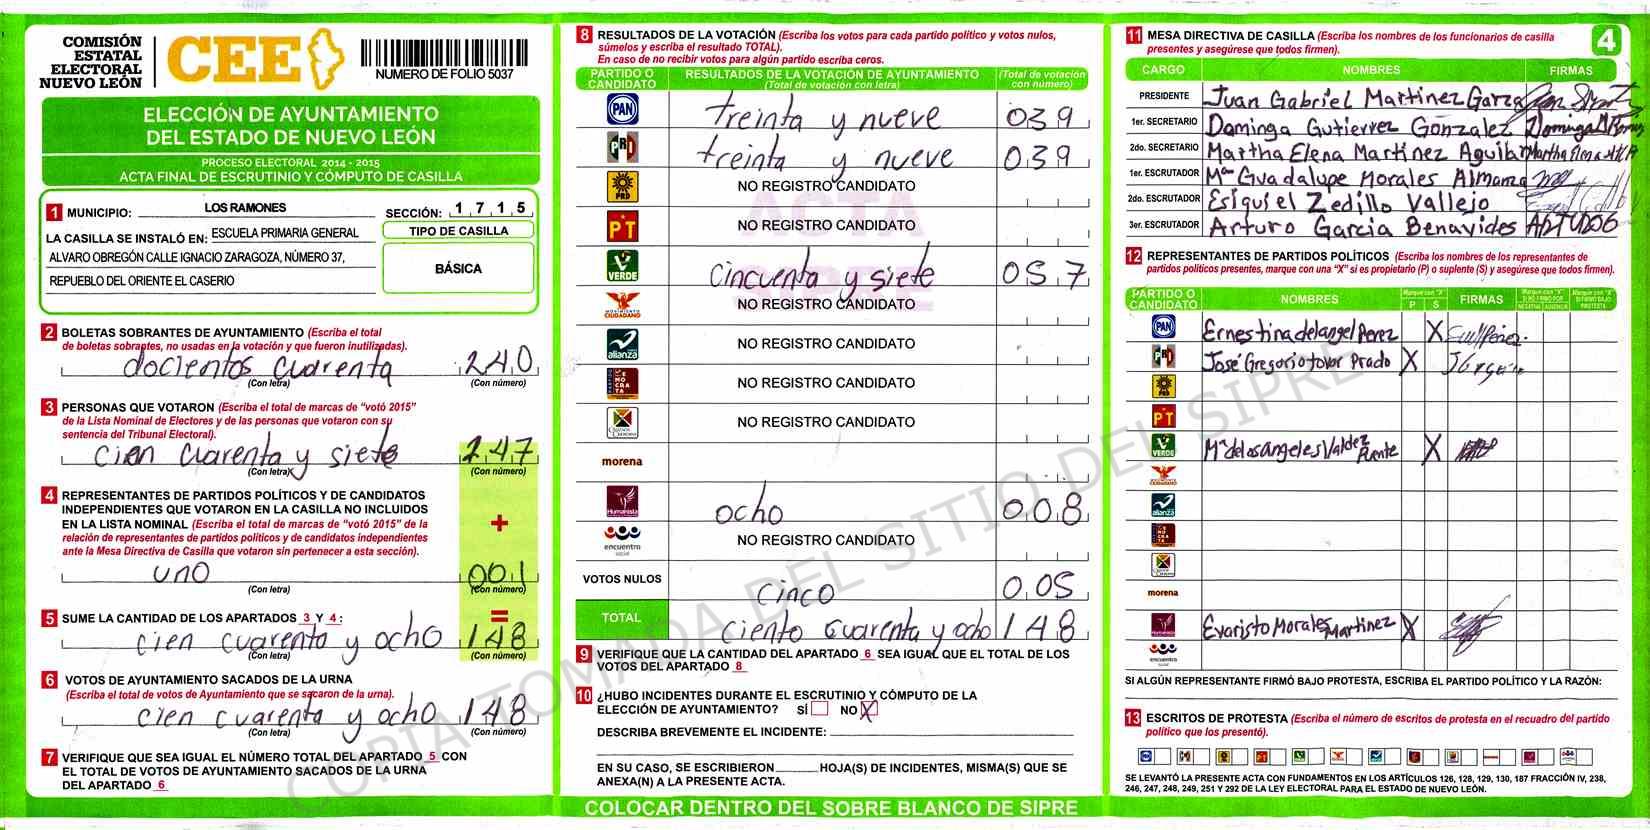 COMISIÓN
ESTATAL
ELECTORAL
NUEVO LEÓN
CEE
NUMERO DE FOLIO 5037
ELECCIÓN DE AYUNTAMIENTO
DEL ESTADO DE NUEVO LEÓN
PROCESO ELECTORAL 2014 - 2015
ACTA FINAL DE ESCRUTINIO Y CÓMPUTO DE CASILLA
1 MUNICIPIO: LOS RAMONES SECCIÓN: 1 7 1 5
LA CASILLA SE INSTALÓ EN: ESCUELA PRIMARIA GENERAL
ALVARO OBREGÓN CALLE IGNACIO ZARAGOZA, NÚMERO 37,
REPUEBLO DEL ORIENTE EL CASERIO
TIPO DE CASILLA
BÁSICA
2 BOLETAS SOBRANTES DE AYUNTAMIENTO (Escriba el total
de boletas sobrantes, no usadas en la votación y que fueron inutilizadas).
docientos cuarenta 240
(Con letra) (Con número)
3 PERSONAS QUE VOTARON (Escriba el total de marcas de "votó 2015"
de la Lista Nominal de Electores y de las personas que votaron con su
sentencia del Tribunal Electoral).
cien cuarenta y siete 147
(Con letra) (Con número)
4 REPRESENTANTES DE PARTIDOS POLÍTICOS Y DE CANDIDATOS
INDEPENDIENTES QUE VOTARON EN LA CASILLA NO INCLUIDOS
EN LA LISTA NOMINAL (Escriba el total de marcas de "votó 2015" de la
relación de representantes de partidos políticos y de candidatos independientes
ante la Mesa Directiva de Casilla que votaron sin pertenecer a esta sección).
+
uno 001
(Con letra) (Con número)
=
5 SUME LA CANTIDAD DE LOS APARTADOS 3 Y 4:
cien cuarenta y ocho 148
(Con letra) (Con número)
6 VOTOS DE AYUNTAMIENTO SACADOS DE LA URNA
(Escriba el total de votos de Ayuntamiento que se sacaron de la urna).
cien cuarenta y ocho 148
(Con letra) (Con número)
7 VERIFIQUE QUE SEA IGUAL EL NÚMERO TOTAL DEL APARTADO 5 CON
EL TOTAL DE VOTOS DE AYUNTAMIENTO SACADOS DE LA URNA
DEL APARTADO 6
8 RESULTADOS DE LA VOTACIÓN (Escriba los votos para cada partido político y votos nulos,
súmelos y escriba el resultado TOTAL).
En caso de no recibir votos para algún partido escriba ceros.
PARTIDO O CANDIDATO RESULTADOS DE LA VOTACIÓN DE AYUNTAMIENTO (Total de votación con letra) (Total de votación con número)
PAN treinta y nueve 039
PRI treinta y nueve 039
PRD NO REGISTRO CANDIDATO
PT NO REGISTRO CANDIDATO
VERDE cincuenta y siete 057
MOVIMIENTO CIUDADANO NO REGISTRO CANDIDATO
alianza NO REGISTRO CANDIDATO
NO REGISTRO CANDIDATO
NO REGISTRO CANDIDATO
morena
Humanista ocho 008
encuentro social NO REGISTRO CANDIDATO
VOTOS NULOS cinco 005
TOTAL ciento cuarenta y ocho 148
9 VERIFIQUE QUE LA CANTIDAD DEL APARTADO 6 SEA IGUAL QUE EL TOTAL DE LOS
VOTOS DEL APARTADO 8
10 ¿HUBO INCIDENTES DURANTE EL ESCRUTINIO Y CÓMPUTO DE LA
ELECCIÓN DE AYUNTAMIENTO? SÍ NO X
DESCRIBA BREVEMENTE EL INCIDENTE:
EN SU CASO, SE ESCRIBIERON HOJA(S) DE INCIDENTES, MISMA(S) QUE SE
ANEXA(N) A LA PRESENTE ACTA.
COLOCAR DENTRO DEL SOBRE BLANCO DE SIPRE
11 MESA DIRECTIVA DE CASILLA (Escriba los nombres de los funcionarios de casilla
presentes y asegúrese que todos firmen).
4
CARGO NOMBRES FIRMAS
PRESIDENTE Juan Gabriel Martinez Garza
1er. SECRETARIO Dominga Gutierrez Gonzalez
2do. SECRETARIO Martha Elena Martinez Aguilar
1er. ESCRUTADOR Mª Guadalupe Morales Almanza
2do. ESCRUTADOR Esiquiel Zedillo Vallejo
3er. ESCRUTADOR Arturo Garcia Benavides
12 REPRESENTANTES DE PARTIDOS POLÍTICOS (Escriba los nombres de los representantes de
partidos políticos presentes, marque con una "X" si es propietario (P) o suplente (S) y asegúrese que todos firmen).
PARTIDO O CANDIDATO NOMBRES Marque con "X" P S FIRMAS
PAN Ernestina del angel Perez X
PRI José Gregorio tovar Prado X
PRD
PT
VERDE Mª de los angeles Valdez Puente X
MOVIMIENTO CIUDADANO
alianza
morena
Humanista Evaristo Morales Martinez X
encuentro social
SI ALGÚN REPRESENTANTE FIRMÓ BAJO PROTESTA, ESCRIBA EL PARTIDO POLÍTICO Y LA RAZÓN:
13 ESCRITOS DE PROTESTA (Escriba el número de escritos de protesta en el recuadro del partido
político que los presentó).
SE LEVANTÓ LA PRESENTE ACTA CON FUNDAMENTOS EN LOS ARTÍCULOS 126, 128, 129, 130, 187 FRACCIÓN IV, 238,
246, 247, 248, 249, 251 Y 292 DE LA LEY ELECTORAL PARA EL ESTADO DE NUEVO LEÓN.
COPIA TOMADA DEL SITIO DEL SIPRE